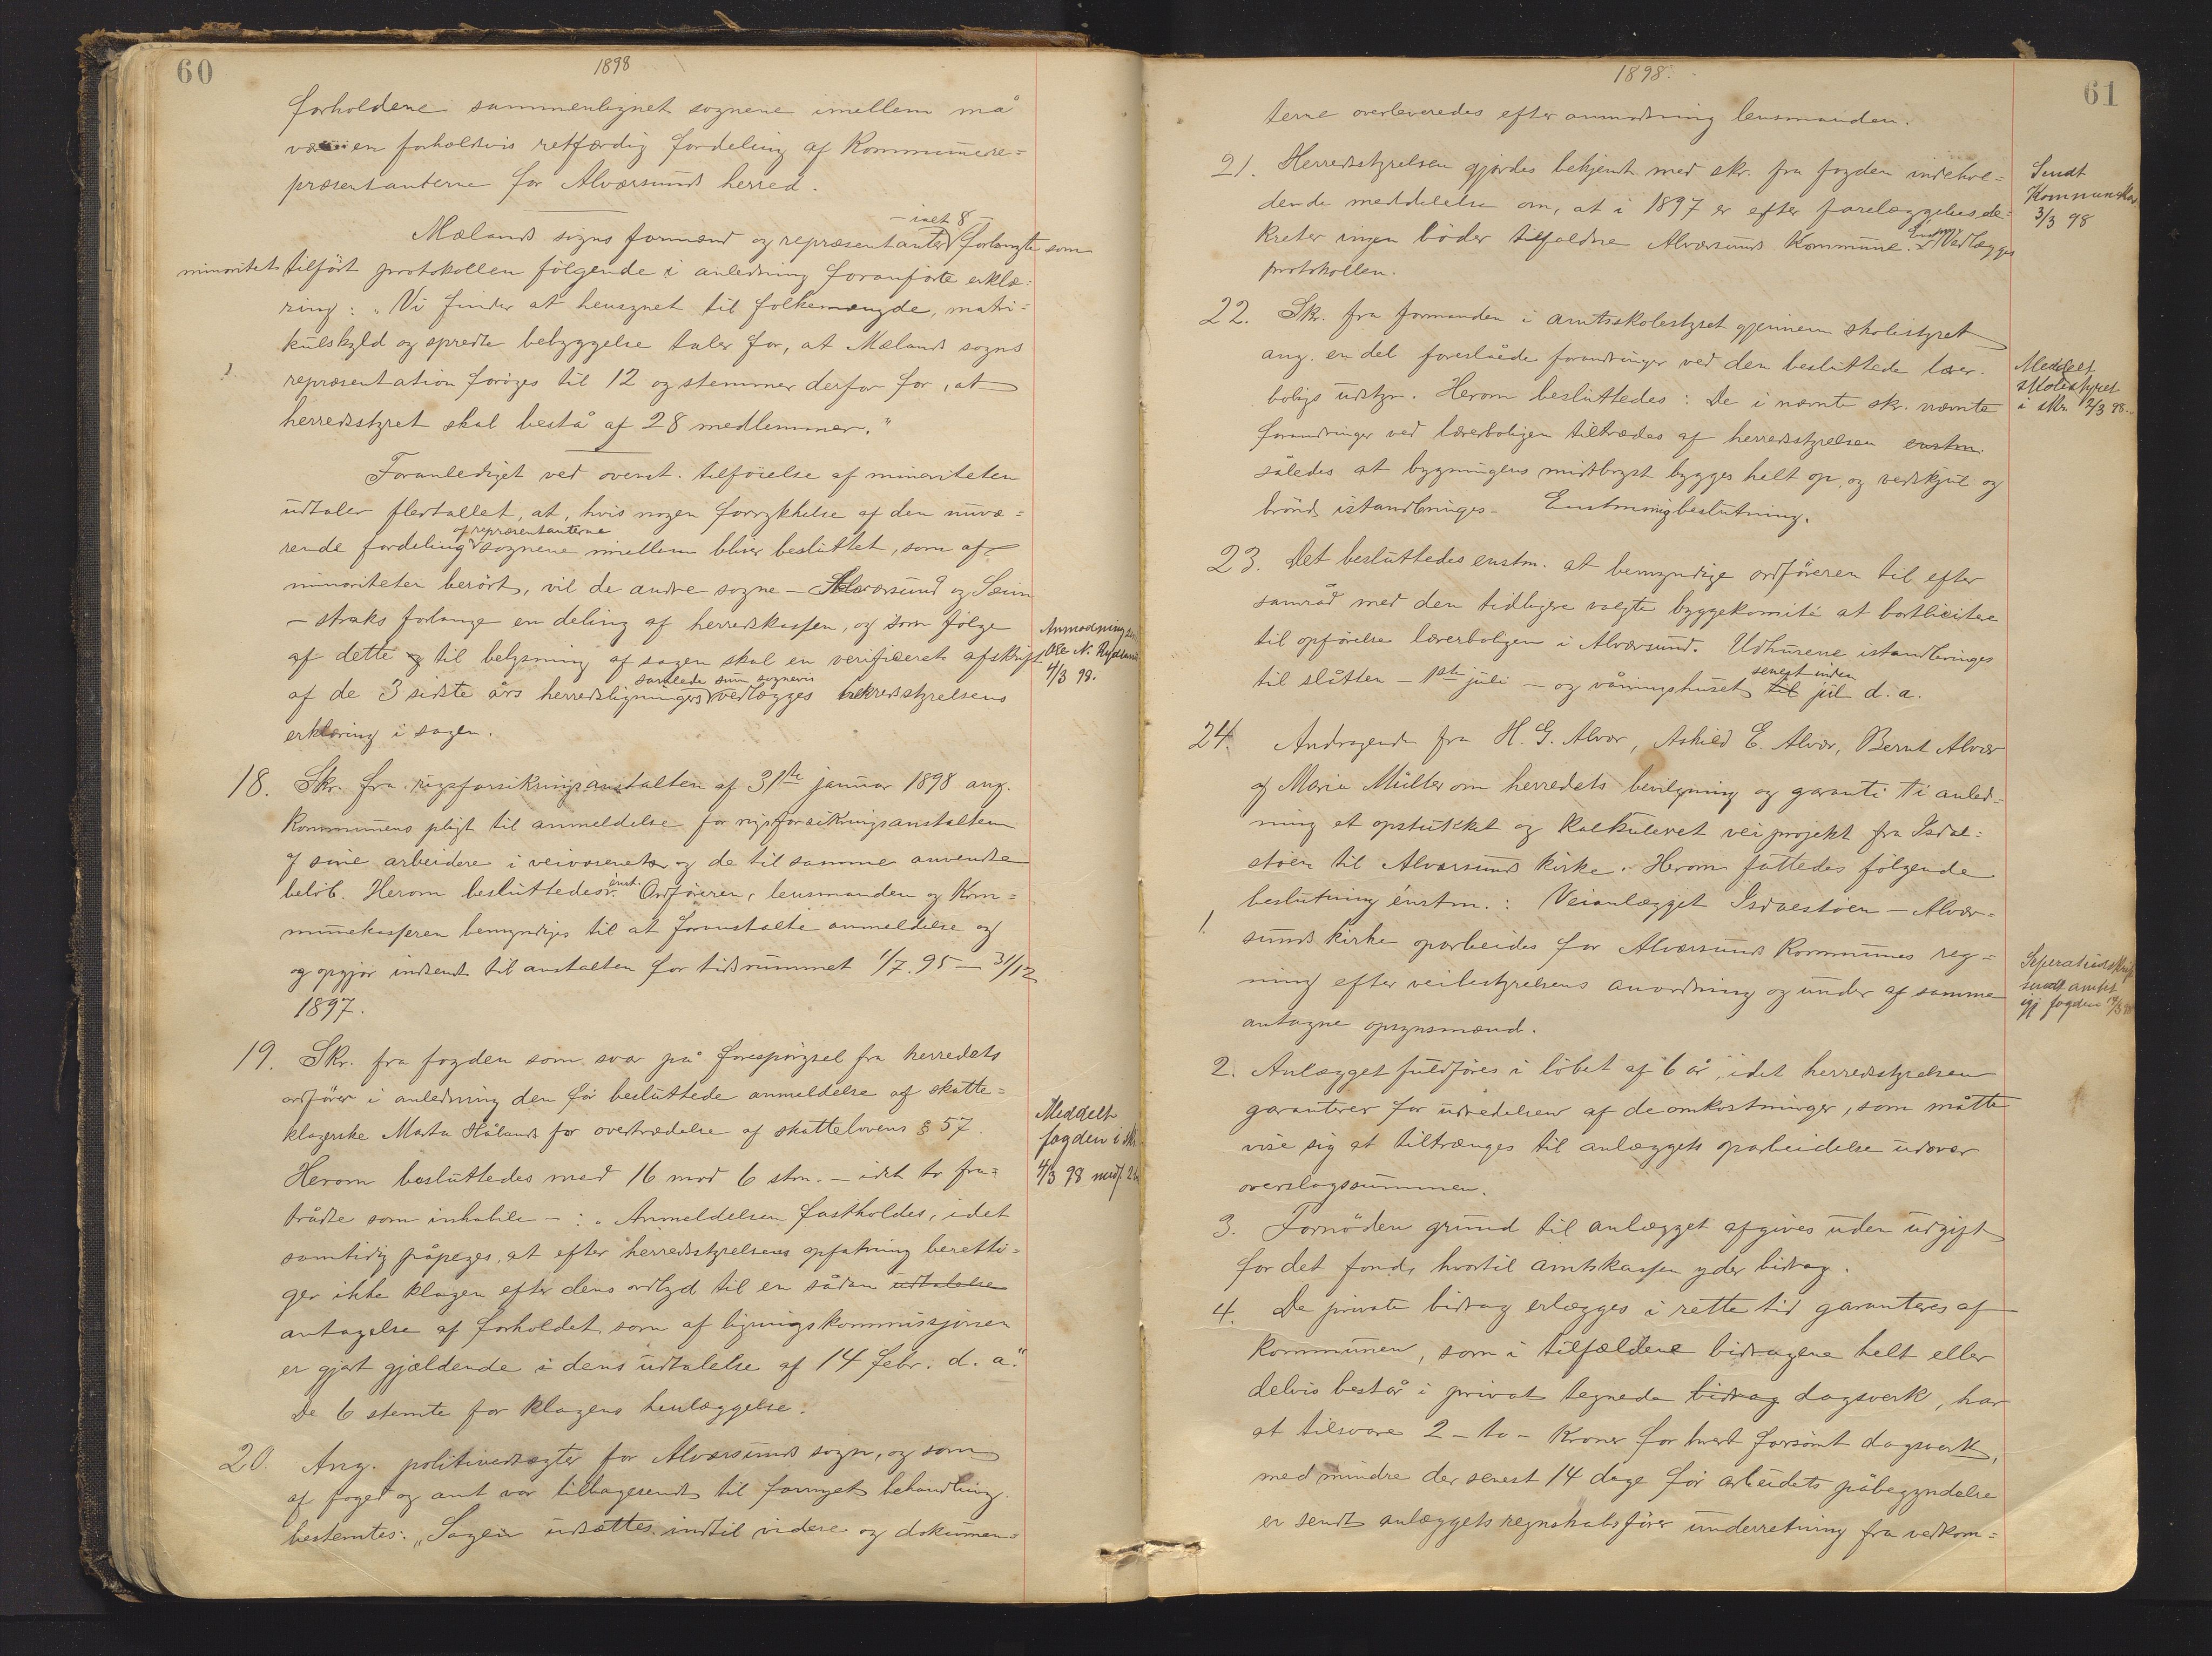 60
1898
forholdene sammenlignet sognene imellem må
være en forholdsvis retfærdig fordeling af Kommunere=
præsentanterne for Alværsunds herred.
- ialt 8 -
Mælands sogns formænd og repræsentanter forlangte som
minoritet tilført protokollen følgende i anledning foranførte erklæ=
ring: „Vi finder at hensynet til folkemængde, matri=
kulskyld og spredte bebyggelse taler for, at Mælands sogns
repræsentation forøges til 12 og stemmer derfor for, at
herredsstyret skal bestå af 28 medlemmer."
Foranlediget ved ovenst. tilføielse af minoriteten
udtaler flertallet, at, hvis nogen forrykkelse af den nuvæ=
af repræsentanterne
rende fordeling sognene imellem bliver besluttet, som af
minoriteten berørt, vil de andre sogne - Alværsund og Seim
- straks forlange en deling af herredskassen, og som følge
af dette og til belysning af sagen skal en verificeret afskrift
særleede sum sognevis
af de 3 sidste års herredsligninger vedlægges herredsstyrelsens
erklæring i sagen.
Anmodning
Ole N.
4/3 98.
18. Skr. fra rigsforsikringsanstalten af 31te januar 1898 ang.
Kommunens pligt til anmeldelse for rigsforsikringsanstalten
af sine arbeidere i veivæsenet og de til samme anvendte
beløb. Herom besluttedes enst. Ordføreren, lensmanden og Kom=
munekasseren bemyndiges til at foranstalte anmeldelse og
og opgjør indsendt til anstalten for tidsrummet 1/7. 95 - 31/12
1897.
19. Skr. fra fogden som svar på forespørgsel fra herredets
ordfører i anledning den før besluttede anmeldelse af skatte=
klagerske Marta Håland for overtrædelse af skattelovens § 57.
Herom besluttedes med 16 mod 6 stm. - idet to fra=
trådte som inhabile - : „Anmeldelsen fastholdes, idet
samtidig påpeges, at efter herredsstyrelsens opfatning beretti=
ger ikke klagen efter dens ordlyd til en sådan udtalelse
antagelse af forholdet, som af ligningskommissjonen
er gjort gjældende i dens udtalelse af 14 febr. d. a."
De 6 stemte for klagens henlæggelse.
Meddelt
fogden i skr.
4/3 98 medf.
20. Ang. politivedtægter for Alværsunds sogn, og som
af foged og amt var tilbagesendt til fornyet behandling
bestemtes: „Sagen udsættes indtil videre og dokumen=
61
1898.
terne overleveredes efter anmodning lensmanden.
21. Herredsstyrelsen gjordes bekjendt med skr. fra fogden indehol=
dende meddelelse om, at i 1897 er efter forelæggelsesde=
kreter ingen bøder tilfaldne Alværsunds Kommune. Vedlægges
protokollen.
Sendt
Kommunekas.
3/3 98
22. Skr. fra formanden i amtsskolestyret gjennem skolestyret
ang. en del foreslåede forandringer ved den besluttede lærer-
boligs udstyr. Herom besluttedes: De i nævnte skr. nævnte
forandringer ved lærerboligen tiltrædes af herredsstyrelsen enstm.
således at bygningens midtbryst bygges helt op, og vedskjul og
brønd istandbringes. Enstemmig beslutning.
Meddelt
skolestyret
i skr. 2/3 98.
23. Det besluttedes enstm. at bemyndige ordføreren til efter
samråd med den tidligere valgte byggekomité at bortlicitere
til opførelse lærerboligen i Alværsund. Udhusene istandbringes
senest inden
til slåtten - 1ste juli - og våningshuset til jul d. a.
24. Andragende fra H. G. Alvær, Askild E. Alvær, Bernt Alvær
og Maria Müller om herredets bevilgning og garanti i anled=
ning et opstukket og kalkuleret veiprojekt fra Isdal=
støen til Alværsunds kirke. Herom fattedes følgende
beslutning enstm.: Veianlægget Isdalstøen - Alvær=
1.
sunds kirke oparbeides for Alværsunds Kommunes reg=
ning efter veibestyrelsens anordning og under af samme
antagne opsynsmænd.
Seperatudskrift
sendt amtet
gj fogden
2. Anlægget fuldføres i løbet af 6 år, idet herredsstyrelsen
garanterer for udredelsen af de omkostninger, som måtte
vise sig at tiltrænges til anlæggets oparbeidelse udover
overslagssummen.
3. Fornøden grund til anlægget afgives uden udgift
for det fond, hvortil amtskassen yder bidrag.
4. De private bidrag erlægges i rette tid garanteres af
Kommunen, som i tilfældene bidragene helt eller
delvis består i privat tegnede bidrag dagsverk, har
at tilsvare 2 - to - Kroner for hvert forsømt dagsverk,
med mindre der senest 14 dage før arbeidets påbegyndelse
er sendt anlæggets regnskabsfører underretning fra vedkom=